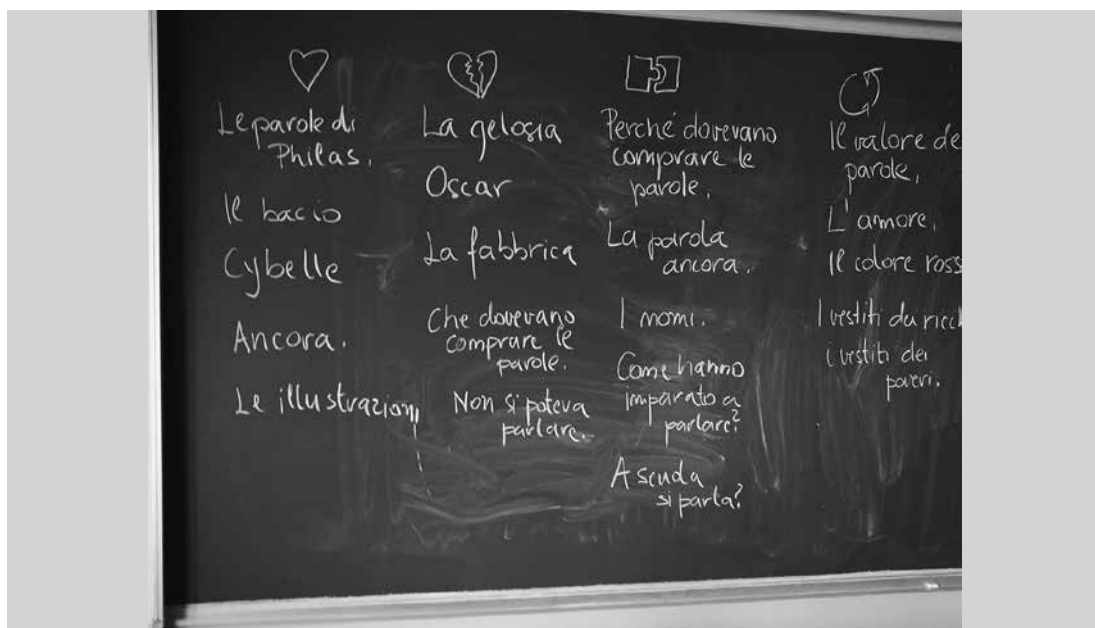 Le parole di
Philas.
Il bacio
Cybelle
Ancora.
Le illustrazioni
La gelosia
Oscar
La fabbrica
Che dovevano
comprare le
parole.
Non si poteva
parlare.
Perché dovevano
comprare le
parole.
La parola
ancora.
I nomi.
Come hanno
imparato a
parlare?
A scuola
si parla?
Il valore de
parole,
L'amore,
Il colore ross
I vestiti da ricch
i vestiti dei
poveri.